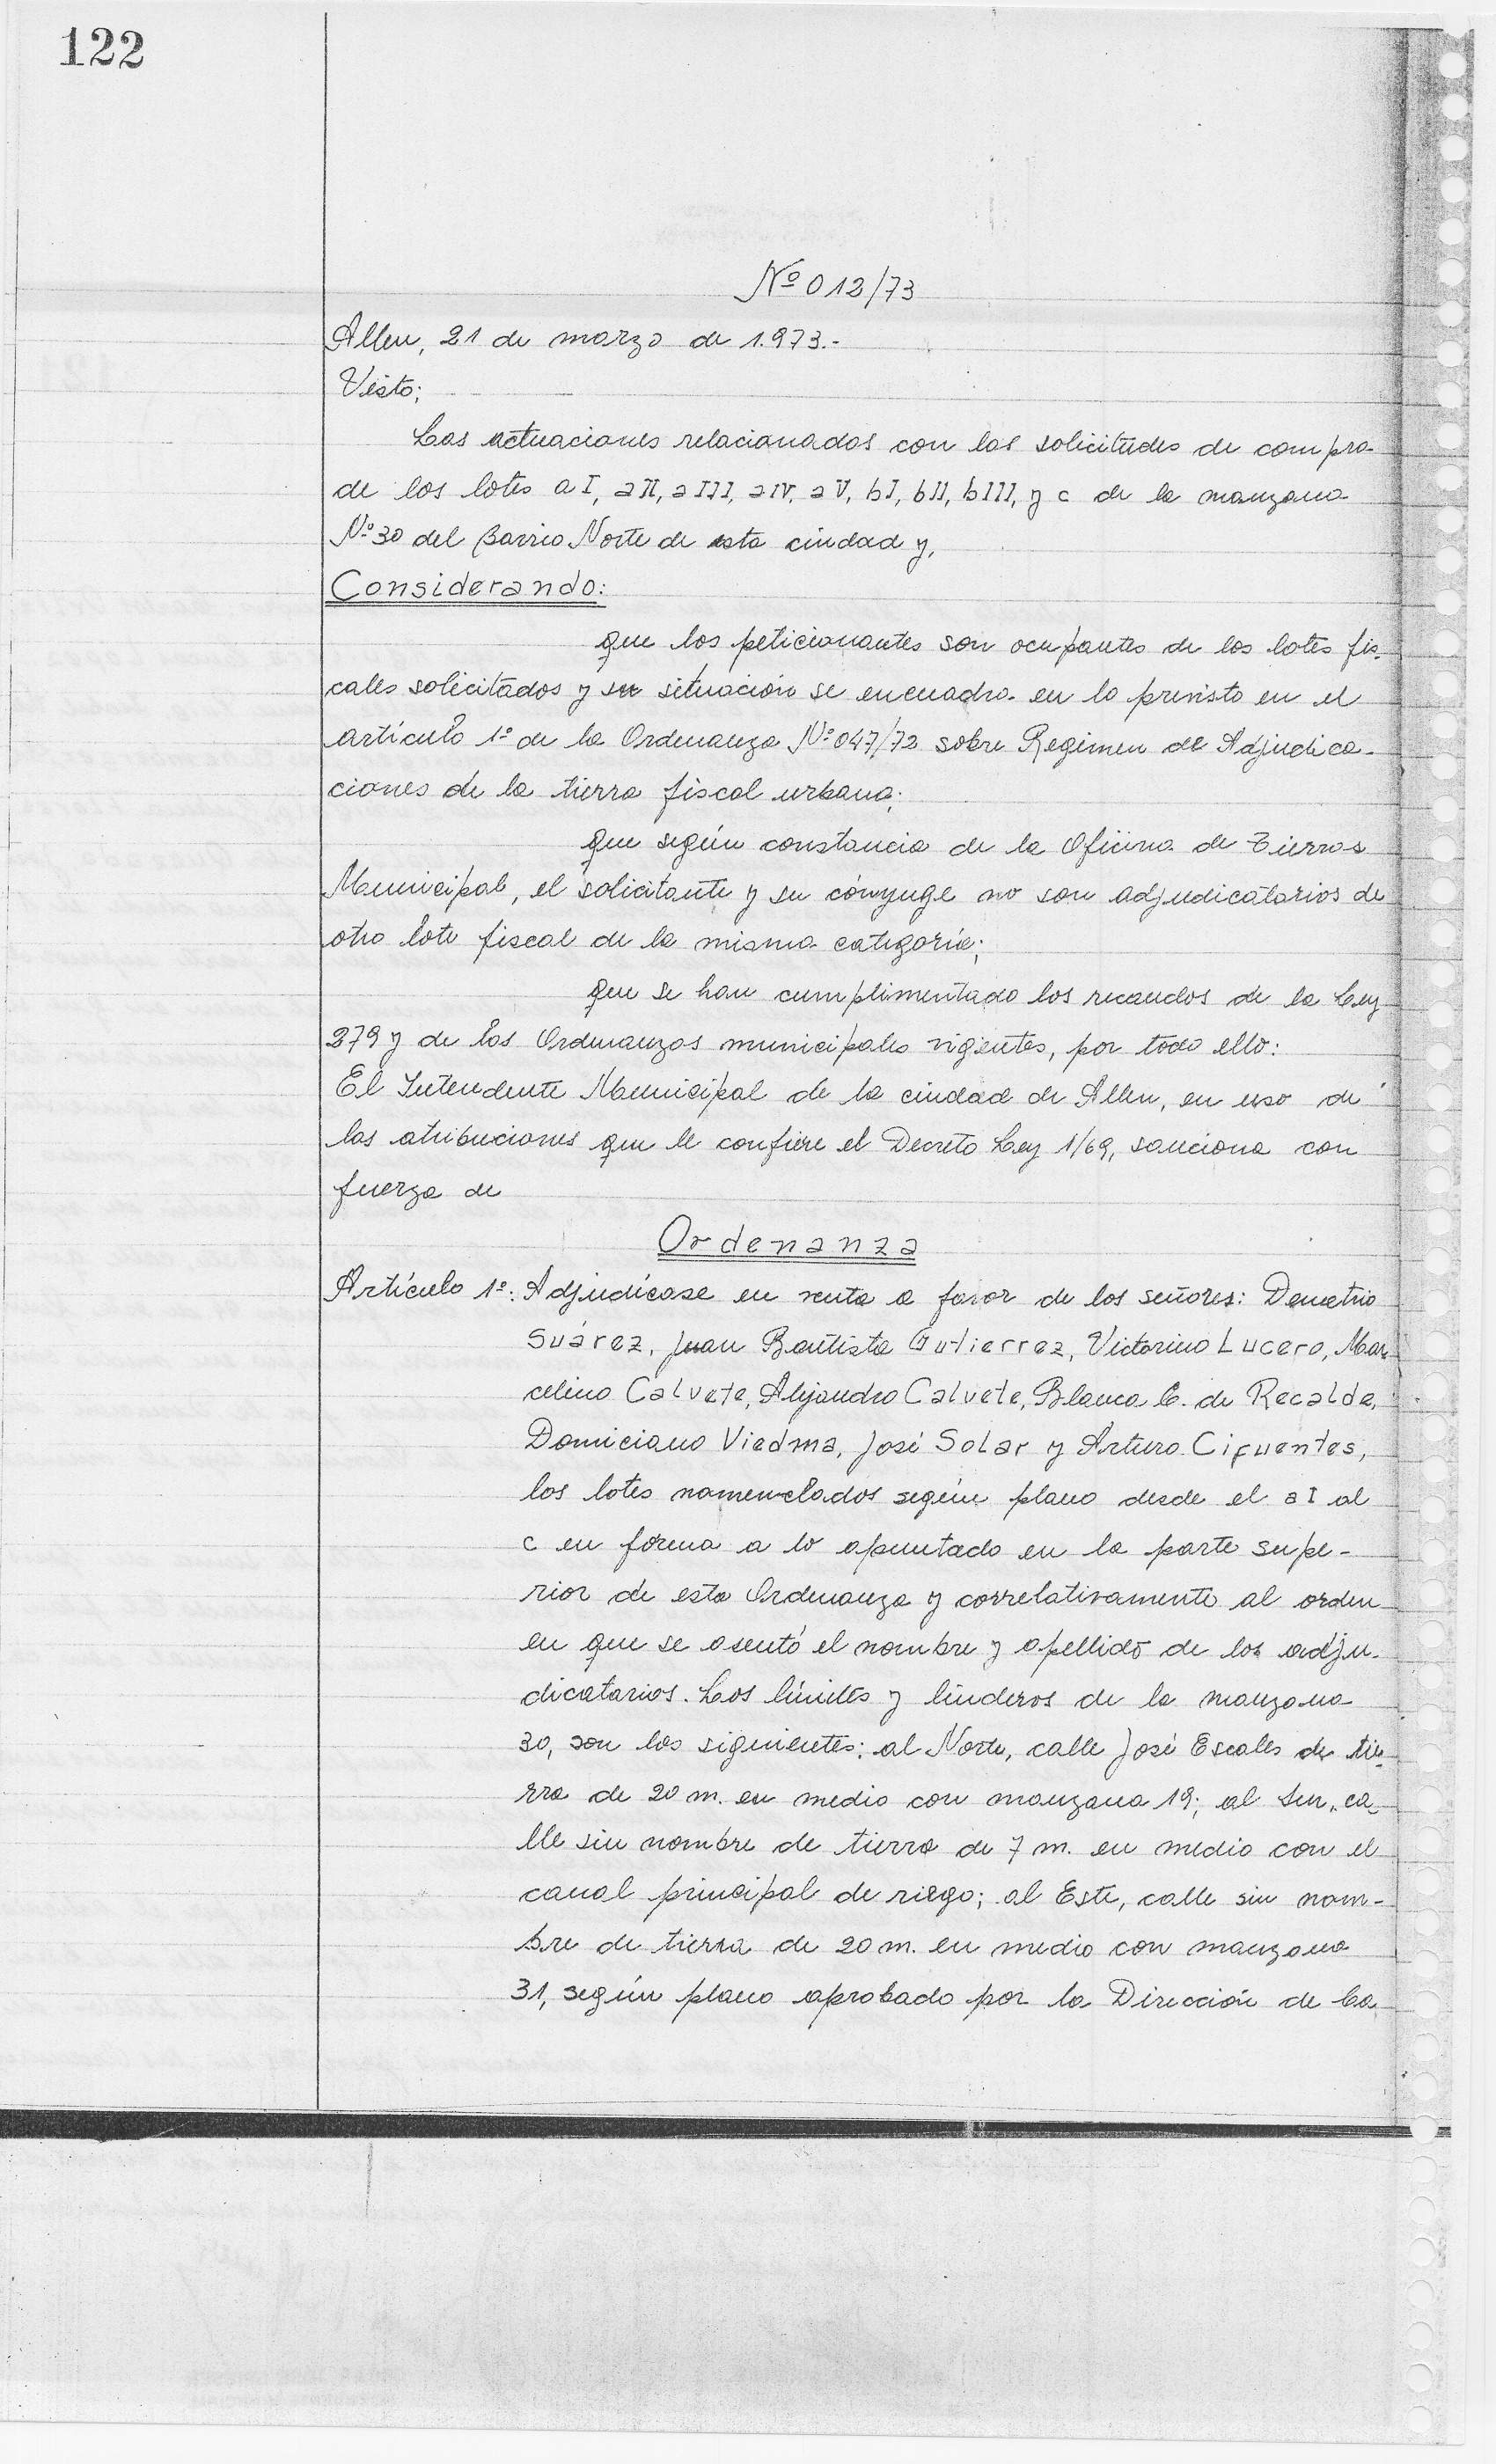 122
Nº 012/73
Allen, 21 de marzo de 1.973.-
Visto;
Las actuaciones relacionadas con las solicitudes de compra
de los lotes a I, a II, a III, a IV, a V, b I, b II, b III, y c de la manzana
Nº 30 del Barrio Norte de esta ciudad y,
Considerando:
que los peticionantes son ocupantes de los lotes fis-
cales solicitados y su situación se encuadra en lo previsto en el
artículo 1º de la Ordenanza Nº 047/72 sobre Regimen de Adjudica-
ciones de la tierra fiscal urbana;
que según constancia de la Oficina de Tierras
Municipal, el solicitante y su cónyuge no son adjudicatarios de
otro lote fiscal de la misma categoría;
que se han cumplimentado los recaudos de la Ley
279 y de las Ordenanzas municipales vigentes, por todo ello:
El Intendente Municipal de la ciudad de Allen, en uso de
las atribuciones que le confiere el Decreto Ley 1/69, sanciona con
fuerza de
Ordenanza
Artículo 1º: Adjudícase en venta a favor de los señores: Demetrio
Suárez, Juan Bautista Gutierrez, Victorino Lucero, Mar
celino Calvete, Alejandro Calvete, Blanca C. de Recalde,
Domiciano Viedma, José Solar y Arturo Cifuentes,
los lotes nomenclados según plano desde el a I al
c en forma a lo apuntado en la parte supe-
rior de esta Ordenanza y correlativamente al orden
en que se asentó el nombre y apellido de los adju-
dicatarios. Los límites y linderos de la manzana
30, son los siguientes: al Norte, calle José Escales de tie-
rra de 20 m. en medio con manzana 19; al Sur, ca-
lle sin nombre de tierra de 7 m. en medio con el
canal principal de riego; al Este, calle sin nom-
bre de tierra de 20 m. en medio con manzana
31, según plano aprobado por la Dirección de Ca